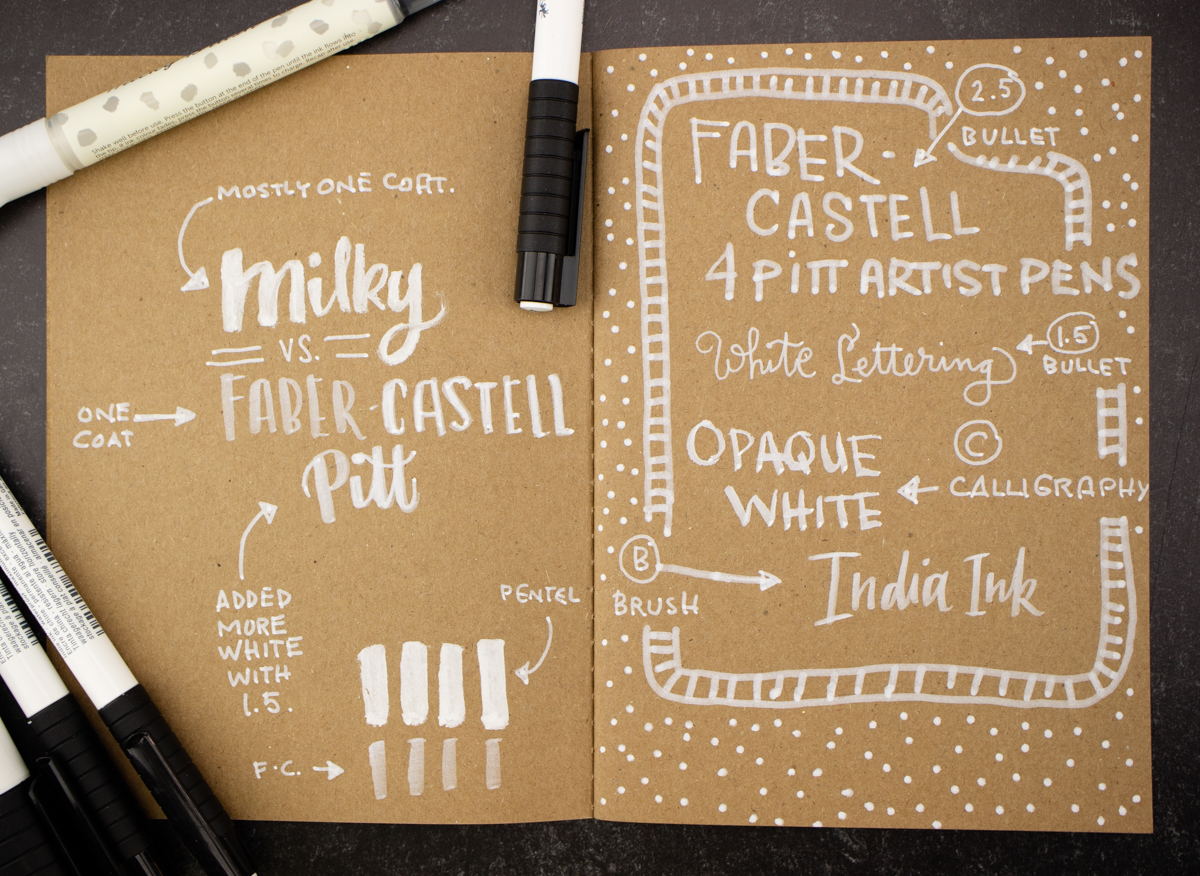 Shake well before use. Press the button at the end of the pen until the ink flows into
the tip. If ink colour fades, press the button several times to charge. Recap after use.
MOSTLY ONE COAT.
Milky
VS.
FABER-CASTELL
Pitt
ONE
COAT
ADDED
MORE
WHITE
WITH
1.5.
PENTEL
F.C.
2.5
BULLET
FABER-
CASTELL
4 PITT ARTIST PENS
White Lettering
1.5
BULLET
OPAQUE
WHITE
C
CALLIGRAPHY
B
BRUSH
India Ink